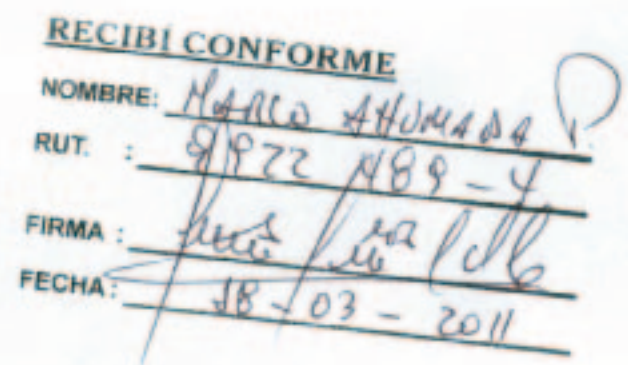 RECIBÍ CONFORME
NOMBRE: MARCO AHUMADA P.
RUT. : 9922 189-4
FIRMA :
FECHA: 18-03-2011